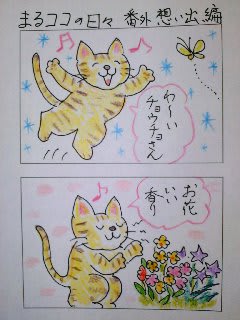 まるココの日々 番外 想い出編
わーい
チョウチョさん
お花
いい
香り